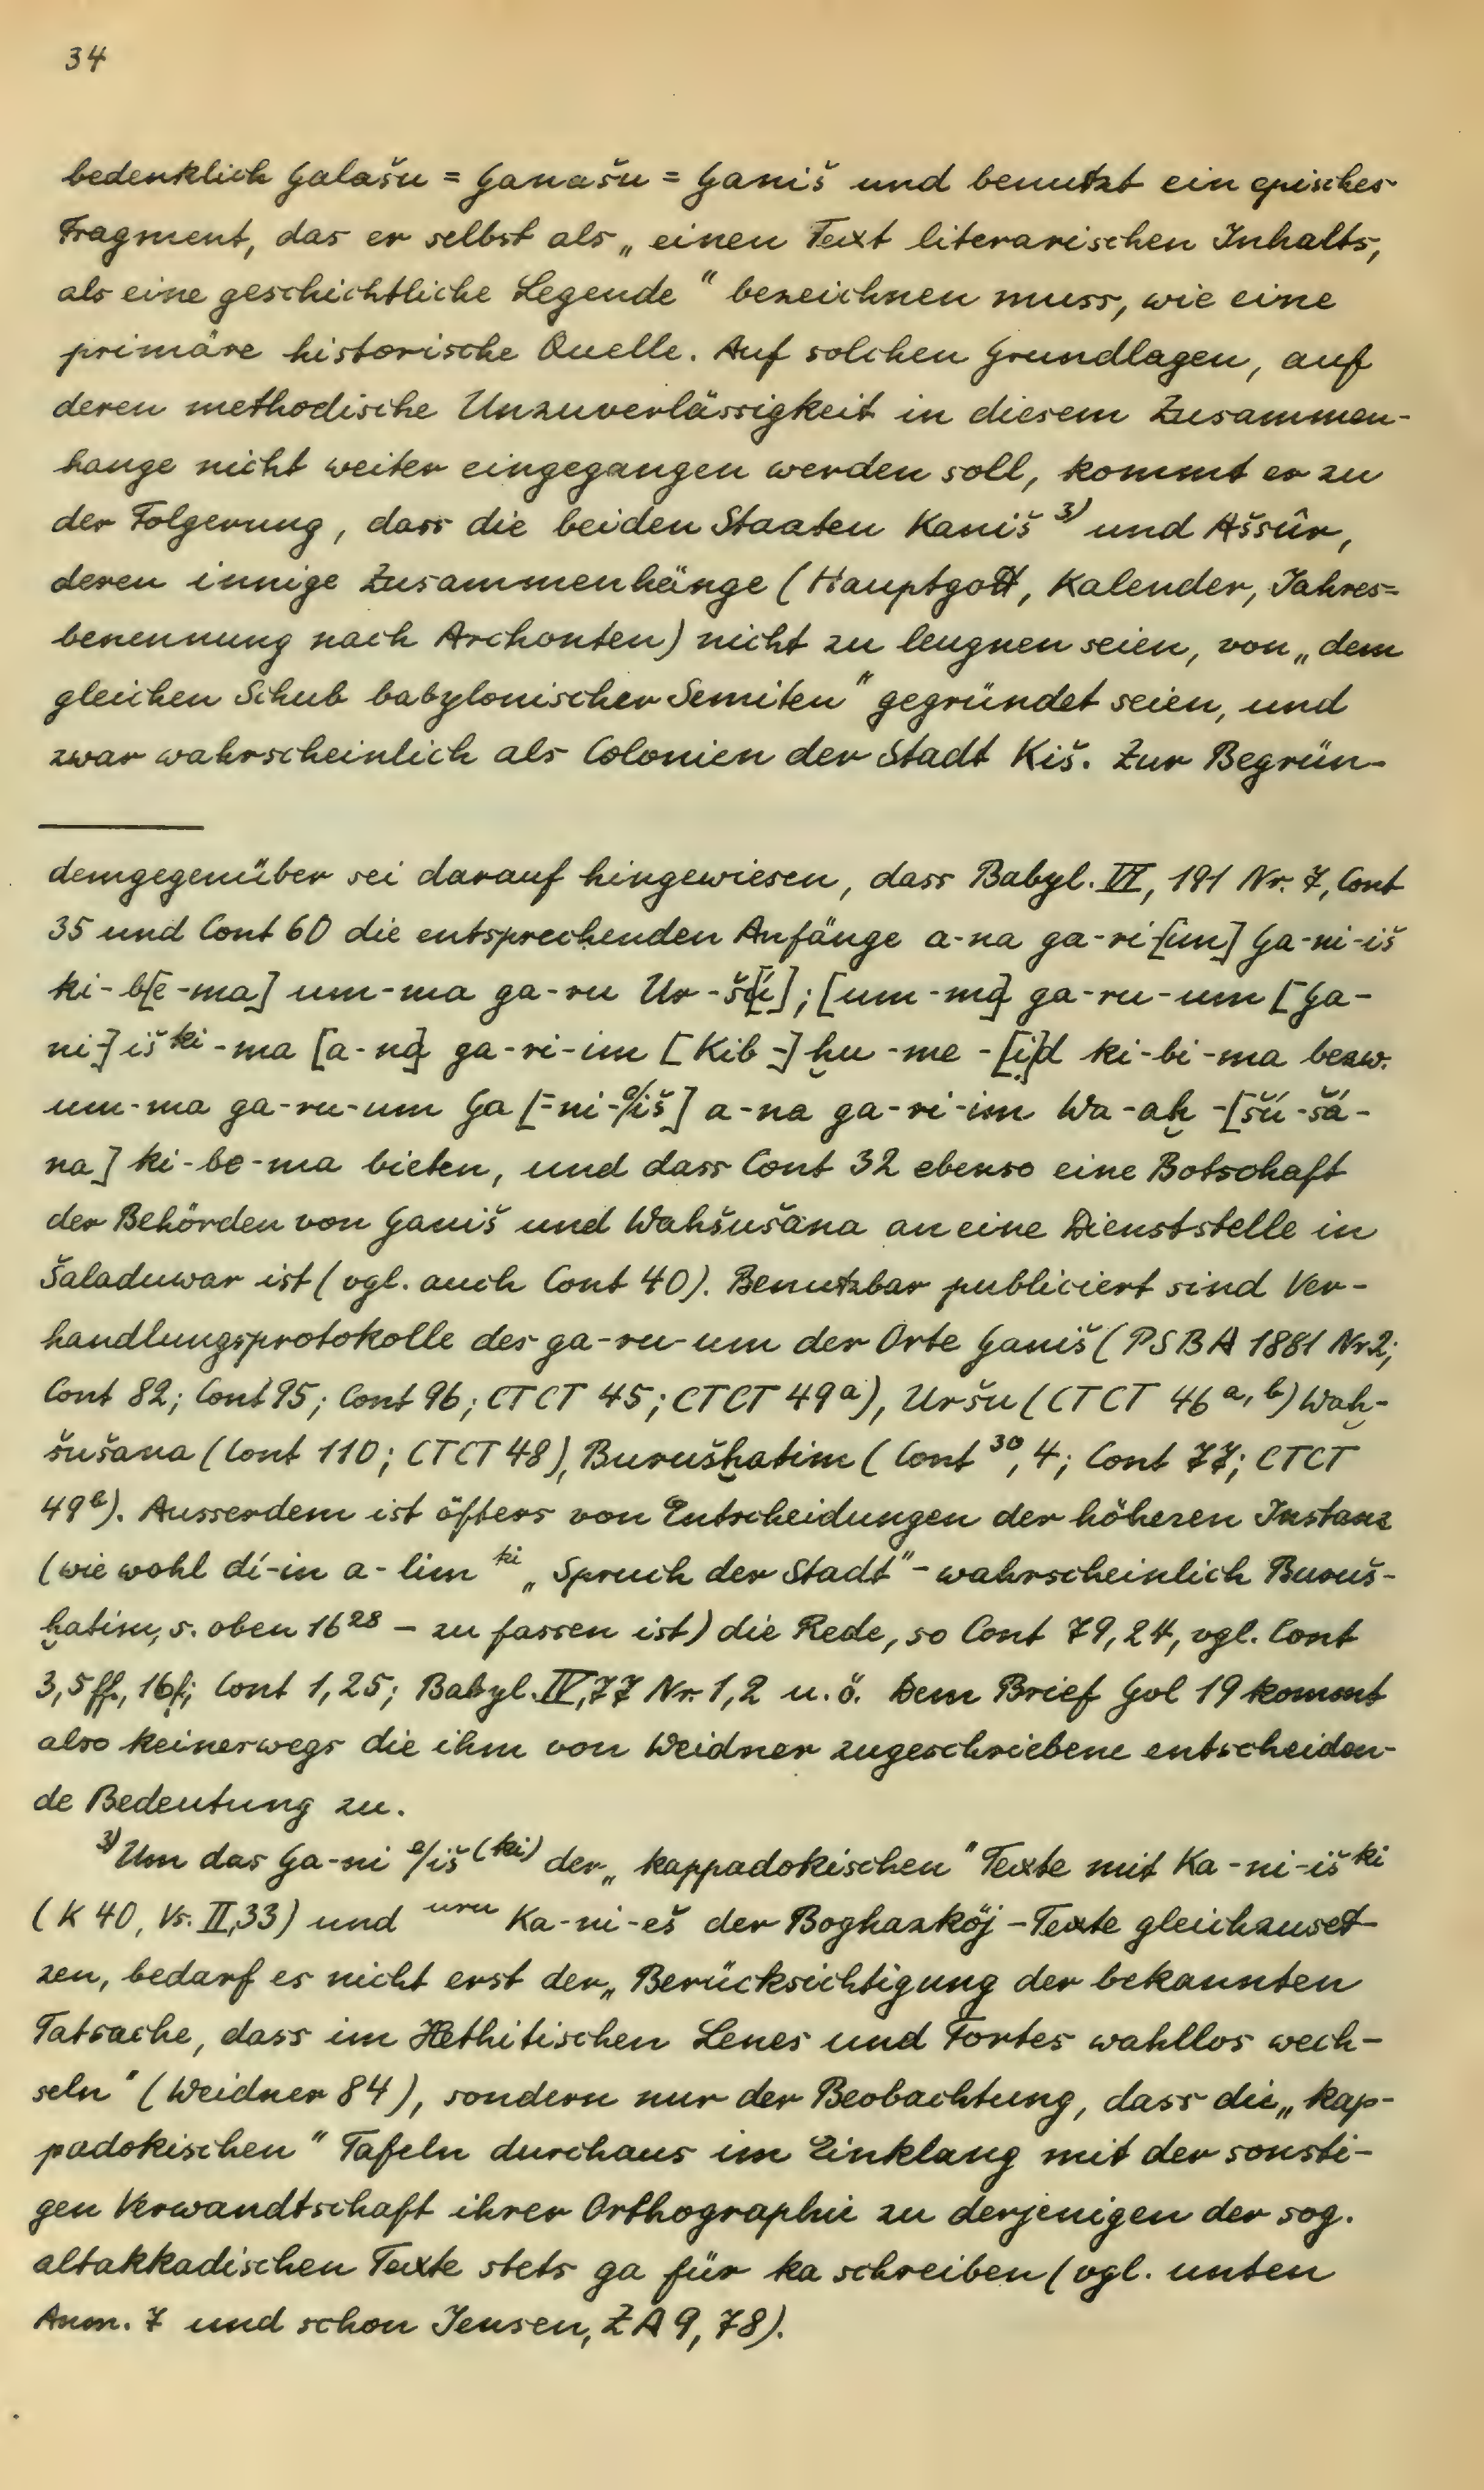 34
bedenklich Galašu = Ganašu = Ganiš und benutzt ein episches
Fragment, das er selbst als „einen Text literarischen Inhalts,
als eine geschichtliche Legende" bezeichnen muss, wie eine
primäre historische Quelle. Auf solchen Grundlagen, auf
deren methodische Unzuverlässigkeit in diesem Zusammen-
hange nicht weiter eingegangen werden soll, kommt er zu
der Folgerung, dass die beiden Staaten Kaniš ³⁾ und Aššûr,
deren innige Zusammenhänge (Hauptgott, Kalender, Jahres=
benennung nach Archonten) nicht zu leugnen seien, von „dem
gleichen Schub babylonischer Semiten" gegründet seien, und
zwar wahrscheinlich als Colonien der Stadt Kiš. Zur Begrün-
demgegenüber sei darauf hingewiesen, dass Babyl. VI, 191 Nr. 7, Cont
35 und Cont 60 die entsprechenden Anfänge a-na ga-ri-[im] Ga-ni-iš
ki-b[e-ma] um-ma ga-ru Ur-š[ú]; [um-ma] ga-ru-um [Ga-
ni-]iš ᵏⁱ-ma [a-na] ga-ri-im [Kib-]ḫu-me-[i]d ki-bi-ma bezw.
um-ma ga-ru-um Ga[-ni-e/iš] a-na ga-ri-im Wa-aḫ-[šú-šá-
na] ki-be-ma bieten, und dass Cont 32 ebenso eine Botschaft
der Behörden von Ganiš und Wahšušana an eine Dienststelle in
Šaladuwar ist (vgl. auch Cont 40). Benutzbar publiciert sind Ver-
handlungsprotokolle des ga-ru-um der Orte Ganiš (PSBA 1881 Nr 2;
Cont 82; Cont 95; Cont 96; CTCT 45; CTCT 49ᵃ), Uršu (CTCT 46 ᵃ, ᵇ) Waḫ-
šušana (Cont 110; CTCT 48), Burušḫatim (Cont ³⁰, 4; Cont 77; CTCT
49ᵇ). Ausserdem ist öfters von Entscheidungen der höheren Instanz
(wie wohl dí-in a-lim ᵏⁱ „Spruch der Stadt" - wahrscheinlich Buruš-
ḫatim, s. oben 16²⁸ - zu fassen ist) die Rede, so Cont 79, 24, vgl. Cont
3, 5 ff., 16 f.; Cont 1, 25; Babyl. IV, 77 Nr. 1, 2 u. ö. Dem Brief Gol 19 kommt
also keineswegs die ihm von Weidner zugeschriebene entscheiden-
de Bedeutung zu.
³⁾ Um das Ga-ni e/iš⁽ᵏⁱ⁾ der „kappadokischen" Texte mit Ka-ni-iš ᵏⁱ
(K 40, Vs. II, 33) und ᵘʳᵘ Ka-ni-eš der Boghazköj-Texte gleichzuset-
zen, bedarf es nicht erst der „Berücksichtigung der bekannten
Tatsache, dass im Hethitischen Lenes und Fortes wahllos wech-
seln" (Weidner 84), sondern nur der Beobachtung, dass die „kap-
padokischen" Tafeln durchaus im Einklang mit der sonsti-
gen Verwandtschaft ihrer Orthographie zu derjenigen der sog.
altakkadischen Texte stets ga für ka schreiben (vgl. unten
Anm. 7 und schon Jensen, ZA 9, 78).